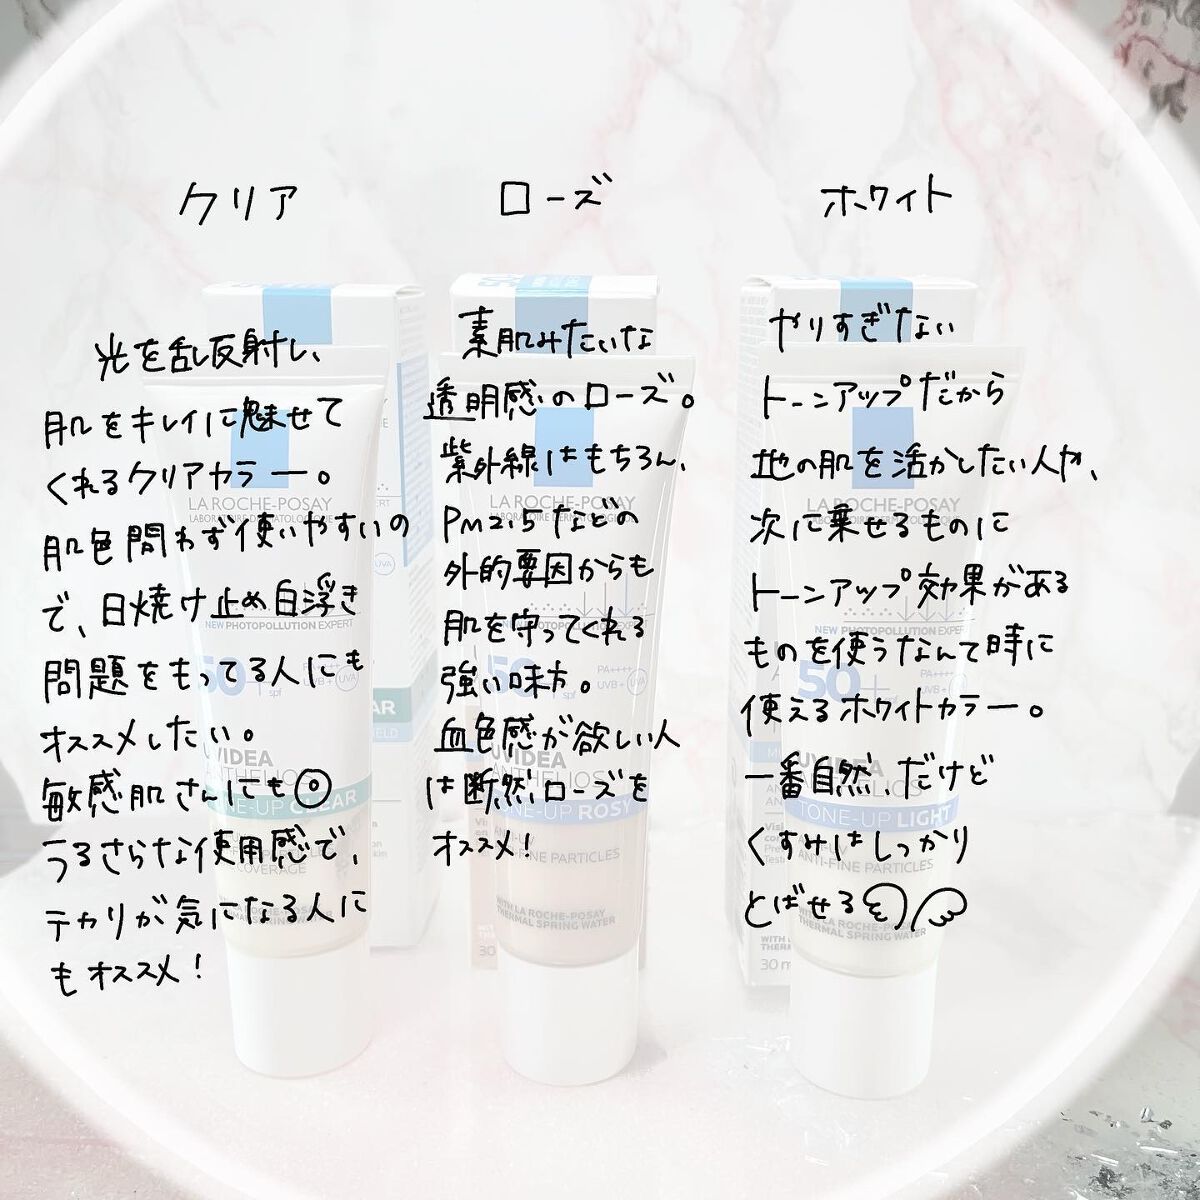 クリア
光を乱反射し、
肌をキレイに魅せて
くれるクリアカラー。
肌色問わず使いやすいの
で、日焼け止め白浮き
問題をもってる人にも
オススメしたい。
敏感肌さんにも◎
うるさらな使用感で、
テカリが気になる人に
もオススメ!
ローズ
素肌みたいな
透明感のローズ。
紫外線はもちろん、
PM2.5などの
外的要因からも
肌を守ってくれる
強い味方。
血色感が欲しい人
は断然ローズを
オススメ!
ホワイト
やりすぎない
トーンアップだから
地の肌を活かしたい人や、
次に乗せるものに
トーンアップ効果がある
ものを使うなんて時に
使えるホワイトカラー。
一番自然、だけど
くすみはしっかり
とばせる
LA ROCHE-POSAY
NEW PHOTOPOLLUTION EXPERT
50+
spf
PA++++
UVB + UVA
UVIDEA
ANTHELIOS
TONE-UP CLEAR
COVERAGE
LA ROCHE-POSAY
LABORATOIRE DERMATOLOGIQUE
NEW PHOTOPOLLUTION EXPERT
50+
spf
PA++++
UVB + UVA
UVIDEA
ANTHELIOS
TONE-UP ROSY
ANTI-FINE PARTICLES
WITH LA ROCHE-POSAY
THERMAL SPRING WATER
30
LA ROCHE-POSAY
NEW PHOTOPOLLUTION EXPERT
50+
spf
PA++++
UVB + UVA
UVIDEA
ANTHELIOS
TONE-UP LIGHT
ANTI-UV
ANTI-FINE PARTICLES
WITH LA ROCHE-POSAY
THERMAL SPRING WATER
30 m